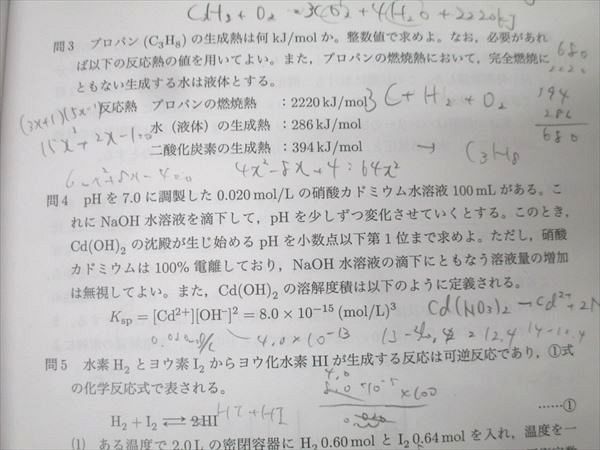 C₃H₈ + O₂ → 3CO₂ + 4H₂O + 2220kJ
問3 プロパン (C₃H₈) の生成熱は何 kJ/mol か。整数値で求めよ。なお，必要があれ
ば以下の反応熱の値を用いてよい。また，プロパンの燃焼熱において，完全燃焼に
ともない生成する水は液体とする。
反応熱 プロパンの燃焼熱 ：2220 kJ/mol
水（液体）の生成熱 ：286 kJ/mol
二酸化炭素の生成熱 ：394 kJ/mol
680
2220
3C + H₂ + O₂
394
286
680
→ C₃H₈
(3x+1)(5x-1)
15x²+2x-1=0
4x²-8x+4=64x²
問4 pH を 7.0 に調製した 0.020 mol/L の硝酸カドミウム水溶液 100 mL がある。こ
れに NaOH 水溶液を滴下して，pH を少しずつ変化させていくとする。このとき，
Cd(OH)₂ の沈殿が生じ始める pH を小数点以下第 1 位まで求めよ。ただし，硝酸
カドミウムは 100% 電離しており，NaOH 水溶液の滴下にともなう溶液量の増加
は無視してよい。また，Cd(OH)₂ の溶解度積は以下のように定義される。
Kₛₚ = [Cd²⁺][OH⁻]² = 8.0 × 10⁻¹⁵ (mol/L)³
Cd(NO₃)₂ → Cd²⁺ + 2N
4.0×10⁻¹³
問5 水素 H₂ とヨウ素 I₂ からヨウ化水素 HI が生成する反応は可逆反応であり，①式
の化学反応式で表される。
H₂ + I₂ ⇄ 2HI ……①
HI+HI
×100
(1) ある温度で 2.0 L の密閉容器に H₂ 0.60 mol と I₂ 0.64 mol を入れ，温度を一